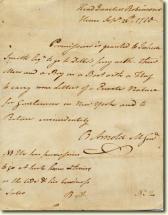 Head Quarters Robinsons
House Sepr 21st 1780
Permission is granted to Joshua
Smith Esqr to go to Dobbs's ferry with three
Men and a Boy in a Boat with a Flag
to carry some Letters of a private Nature
for Gentlemen in New York and to
Return immediately
B. Arnold M Genl
NB He has permission
to go at such hours & times
as the tide & his business
suits
B A